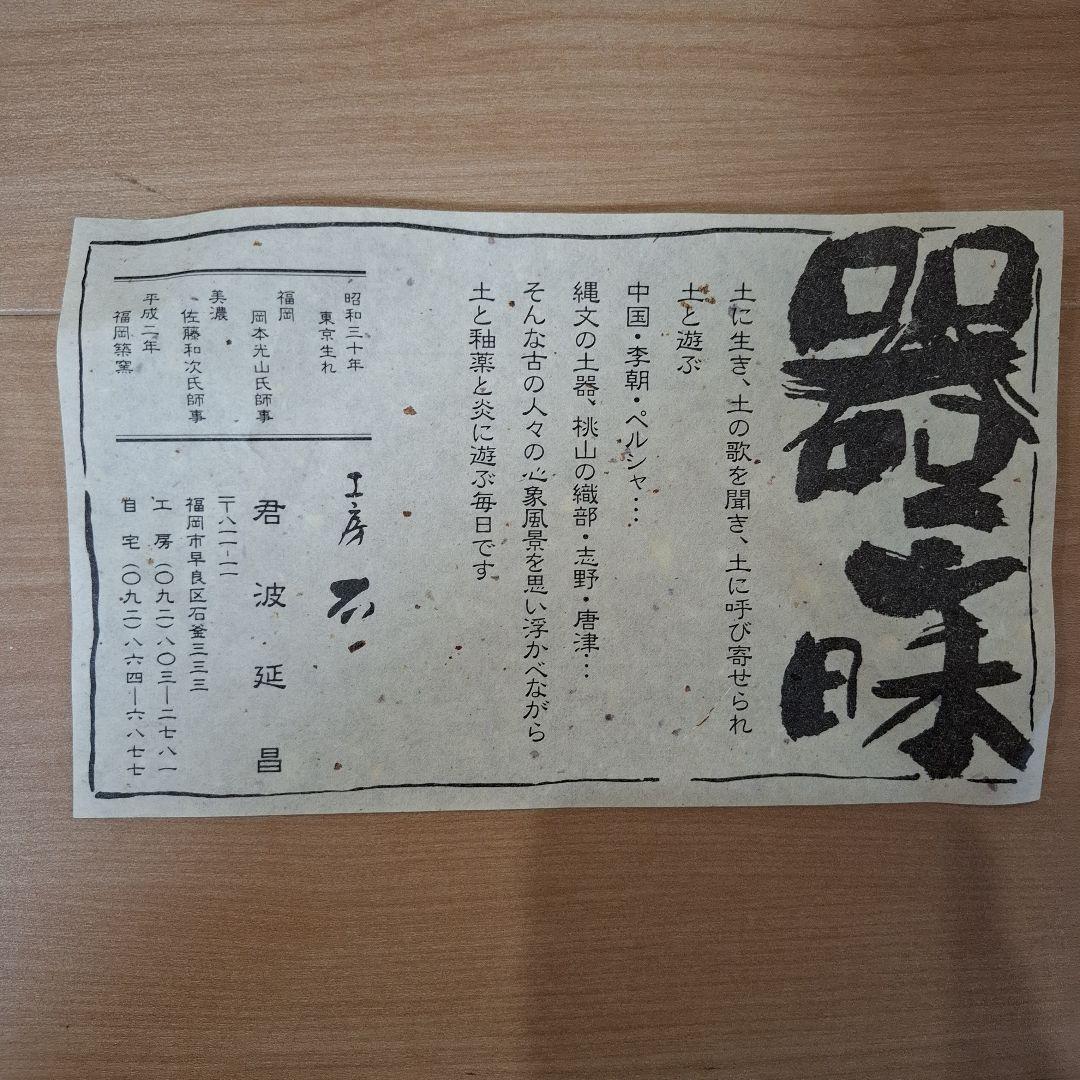 器三昧
土に生き、土の歌を聞き、土に呼び寄せられ
土と遊ぶ
中国・李朝・ペルシャ…
縄文の土器、桃山の織部・志野・唐津…
そんな古の人々の心象風景を思い浮かべながら
土と釉薬と炎に遊ぶ毎日です
昭和三十年
東京生れ
福岡
岡本光山氏師事
美濃
佐藤和次氏師事
平成二年
福岡築窯
工房
君波延昌
〒八一一-一一
福岡市早良区石釜三三三
工房(〇九二)八〇三―二七八一
自宅(〇九二)八六四―六八七七